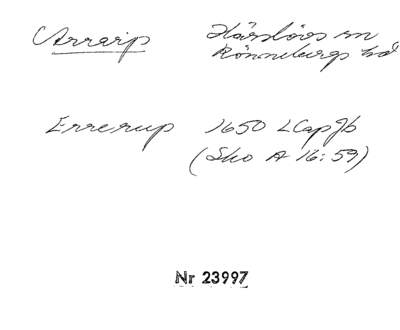 Arrarp Härslövs sn
Rönnebergs hd
Errerup 1650 LCapJb
(Sko A 16:59)
Nr 23997